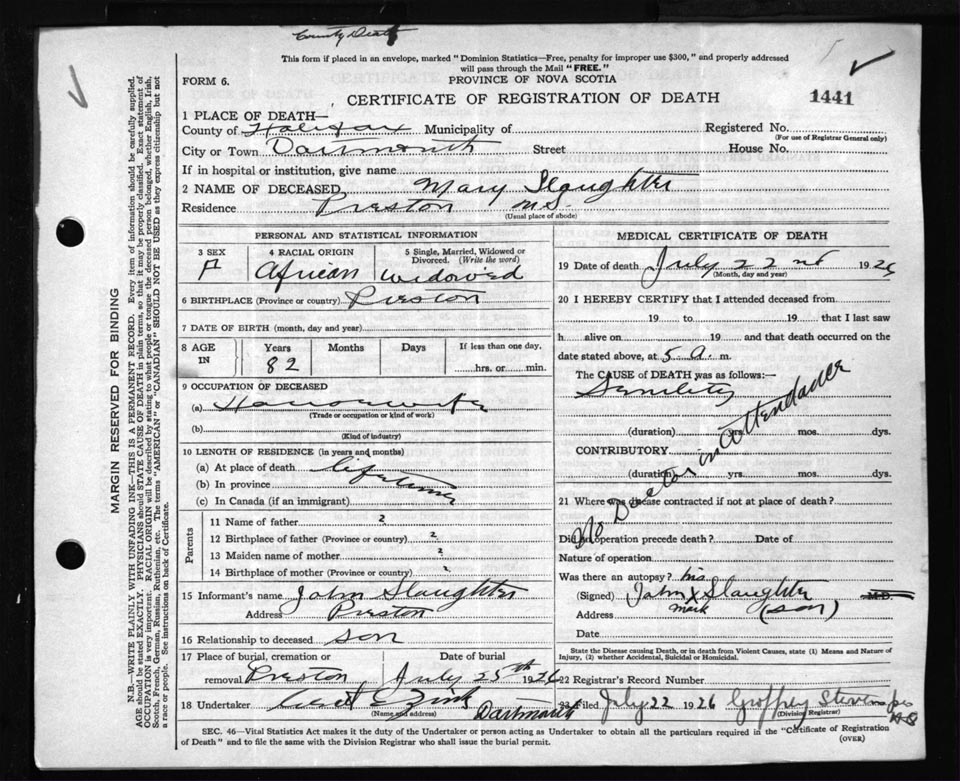 County Death
This form if placed in an envelope, marked "Dominion Statistics—Free, penalty for improper use $300," and properly addressed
will pass through the Mail "FREE."
FORM 6.
PROVINCE OF NOVA SCOTIA
CERTIFICATE OF REGISTRATION OF DEATH
1441
1 PLACE OF DEATH—
County of Halifax Municipality of Registered No.
(For use of Registrar General only)
City or Town Dartmouth Street House No.
If in hospital or institution, give name
2 NAME OF DECEASED, Mary Slaughter
Residence Preston N.S.
(Usual place of abode)
PERSONAL AND STATISTICAL INFORMATION
3 SEX
F
4 RACIAL ORIGIN
African
5 Single, Married, Widowed or
Divorced. (Write the word)
Widowed
6 BIRTHPLACE (Province or country) Preston
7 DATE OF BIRTH (month, day and year)
8 AGE
IN
Years Months Days If less than one day,
82
hrs. or min.
9 OCCUPATION OF DECEASED
(a) Housewife
(Trade or occupation or kind of work)
(b)
(Kind of industry)
10 LENGTH OF RESIDENCE (in years and months)
(a) At place of death lifetime
(b) In province
(c) In Canada (if an immigrant)
Parents
11 Name of father ?
12 Birthplace of father (Province or country) ?
13 Maiden name of mother ?
14 Birthplace of mother (Province or country) ?
15 Informant's name John Slaughter
Address Preston
16 Relationship to deceased son
17 Place of burial, cremation or Date of burial
removal Preston July 25th 1926
18 Undertaker Zink
(Name and address) Dartmouth
MEDICAL CERTIFICATE OF DEATH
19 Date of death July 22nd 1926
(Month, day and year)
20 I HEREBY CERTIFY that I attended deceased from
19 to 19 that I last saw
h alive on 19 and that death occurred on
date stated above, at 5 a. m.
The CAUSE of DEATH was as follows:—
Senility
(duration) yrs. mos. dys.
CONTRIBUTORY
(duration) yrs. mos. dys.
No Doctor in Attendance
21 Where was disease contracted if not at place of death?
Did an operation precede death? Date of
Nature of operation
Was there an autopsy?
his
(Signed) John X Slaughter M.D.
mark
Address (son)
Date
State the Disease causing Death, or in death from Violent Causes, state (1) Means and Nature of
Injury, (2) whether Accidental, Suicidal or Homicidal.
22 Registrar's Record Number
23 Filed July 22 1926 Geoffrey Stevens
(Division Registrar)
SEC. 46—Vital Statistics Act makes it the duty of the Undertaker or person acting as Undertaker to obtain all the particulars required in the "Certificate of Registration
of Death" and to file the same with the Division Registrar who shall issue the burial permit.
(OVER)
MARGIN RESERVED FOR BINDING
N.B.—WRITE PLAINLY WITH UNFADING INK—THIS IS A PERMANENT RECORD. Every item of information should be carefully supplied.
AGE should be stated EXACTLY. PHYSICIANS should STATE CAUSE OF DEATH in plain terms, so that it may be properly classified. Exact statement of
OCCUPATION is very important. RACIAL ORIGIN will be described by stating to what people or tongue the deceased person belonged, whether English, Irish,
Scotch, French, German, Russian, Ruthenian, etc. The terms "AMERICAN" or "CANADIAN" SHOULD NOT BE USED as they express citizenship but not
a race or people. See instructions on back of Certificate.